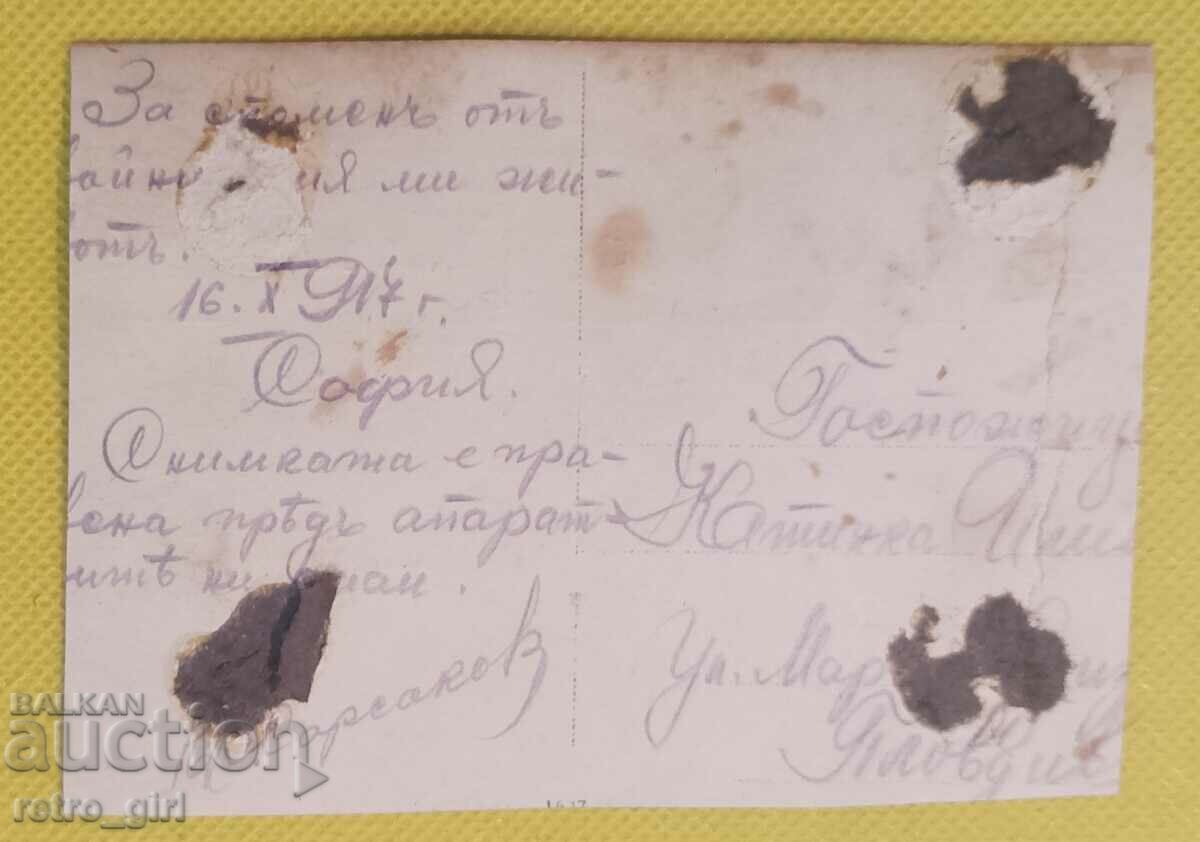 За споменъ отъ
ия ми жи-
вотъ.
16. X 917 г.
София.
Снимката е пра-
вена прѣдъ апарат-
итѣ ни
Госпожиц
Катинка
Ул. Мар
Пловдив
BALKAN
auction
retro_girl